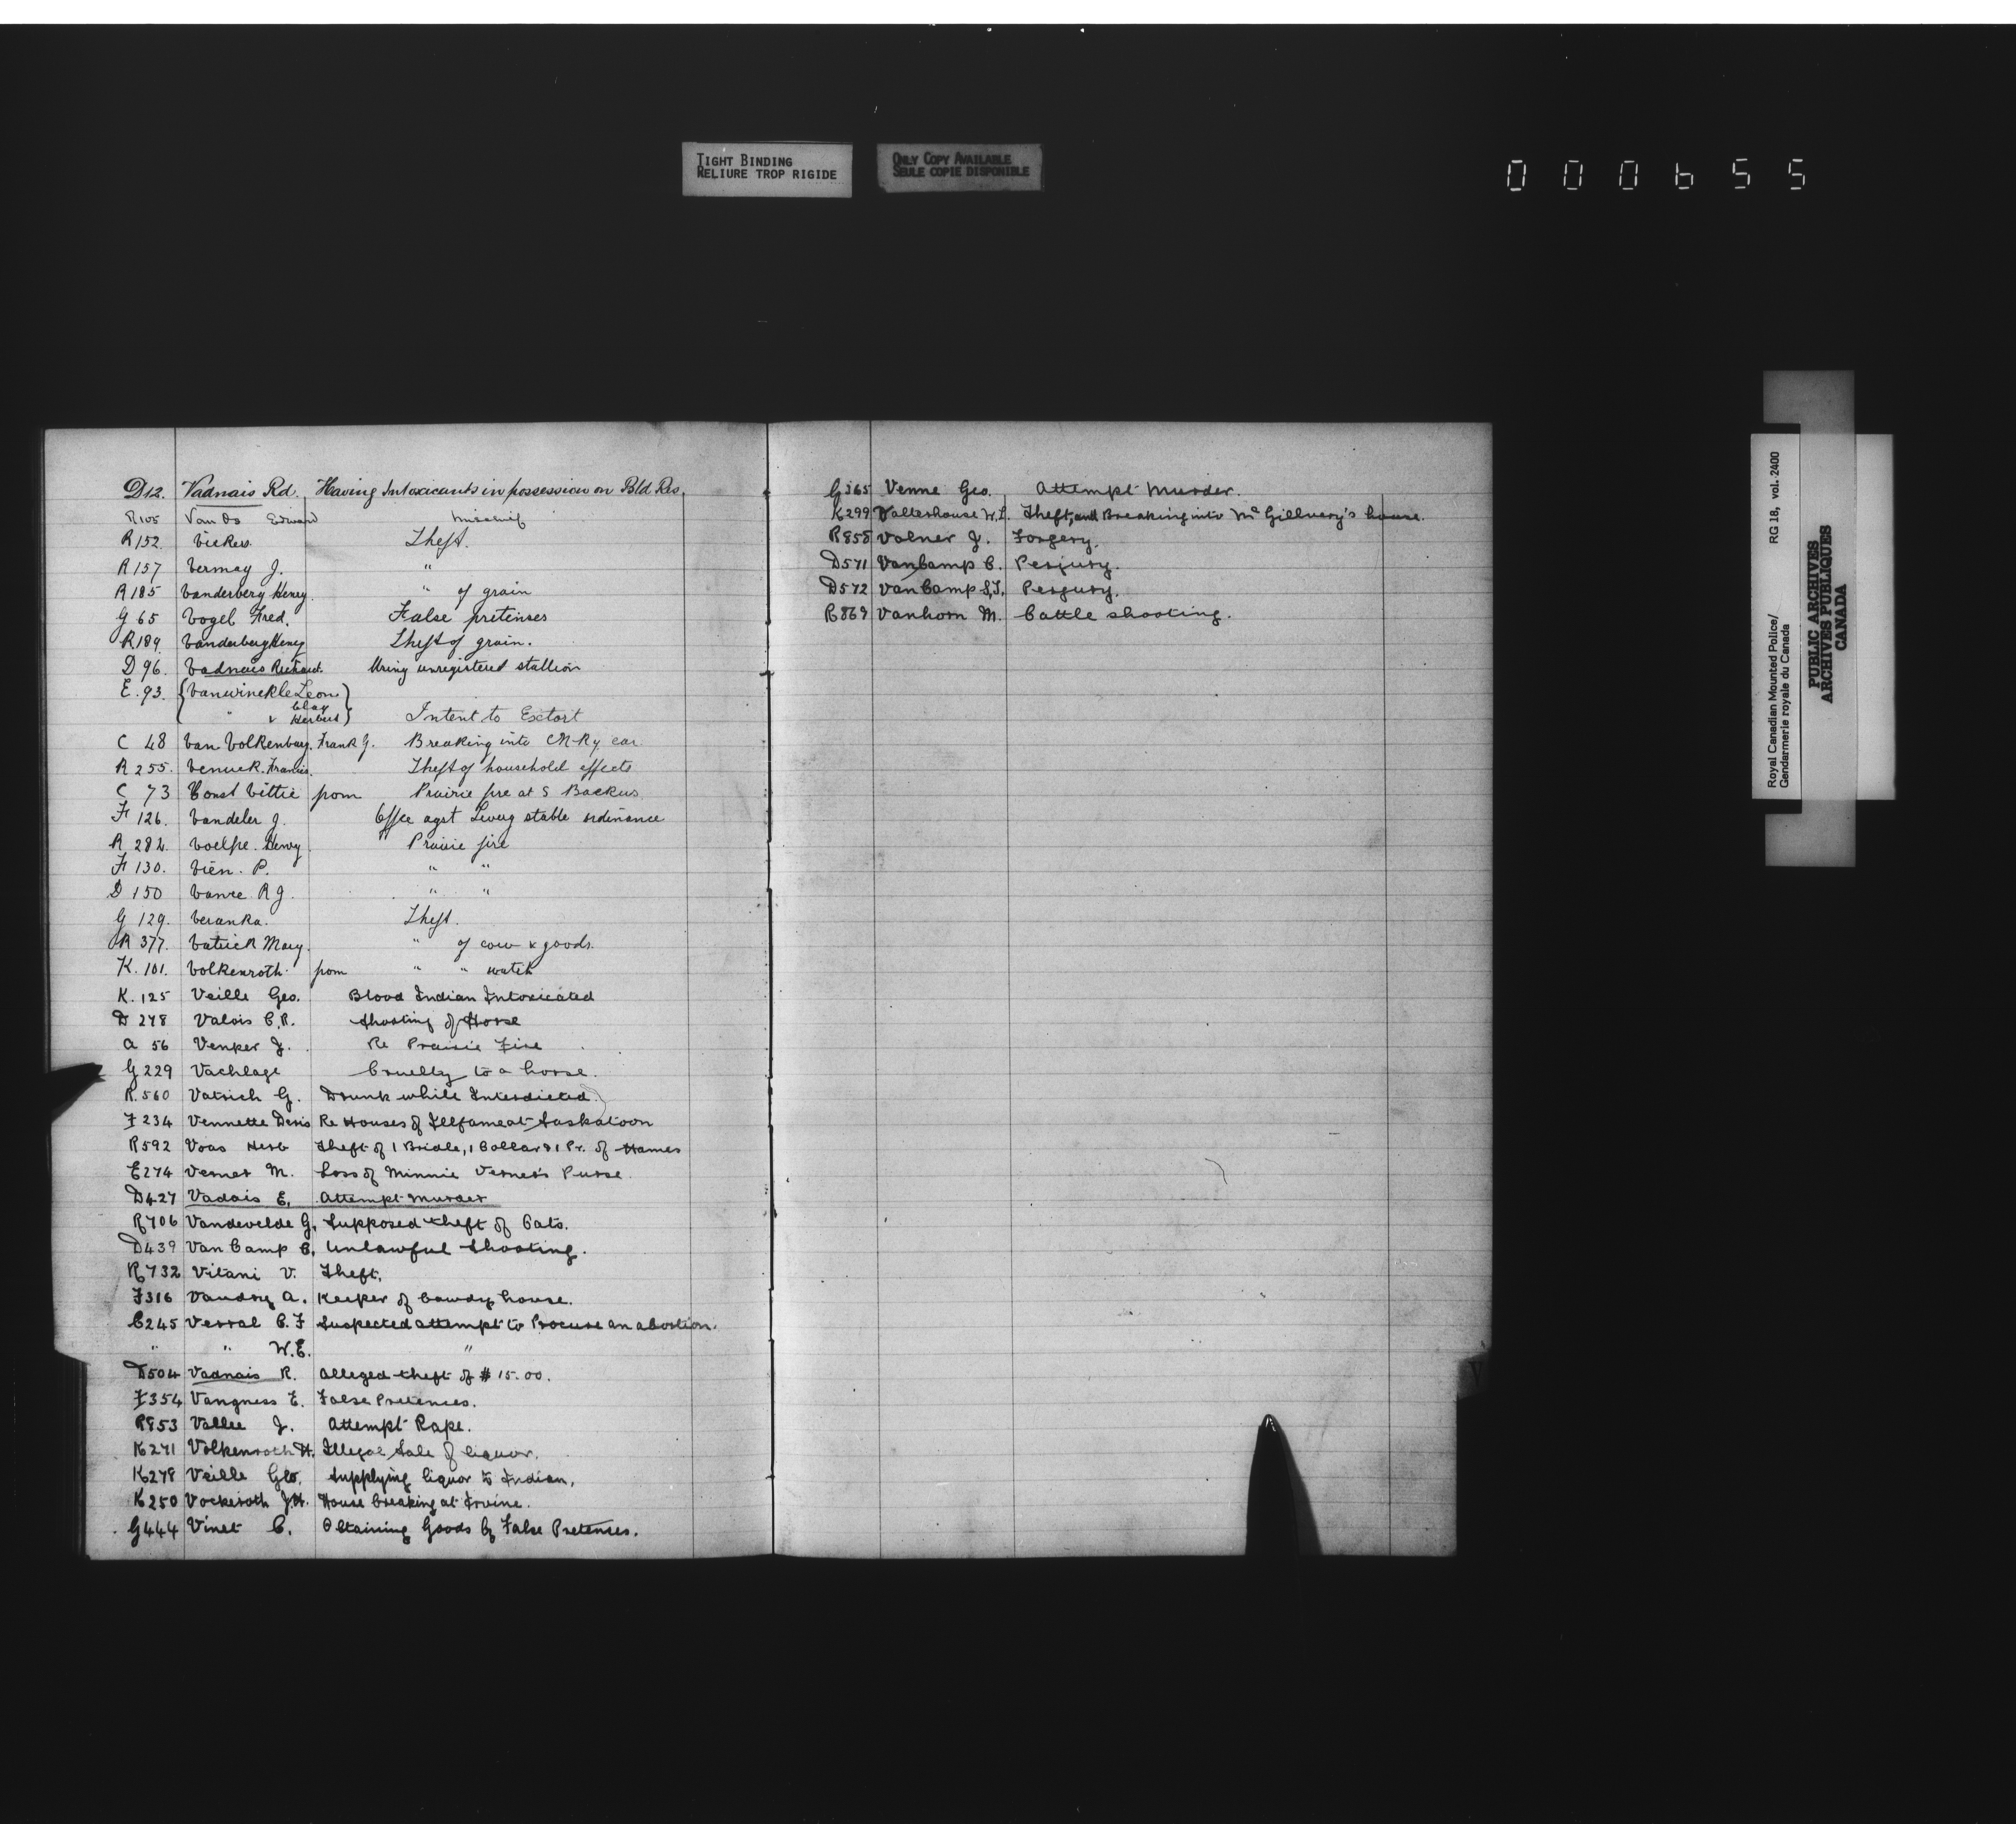 TIGHT BINDING
RELIURE TROP RIGIDE
ONLY COPY AVAILABLE
SEULE COPIE DISPONIBLE
000655
D12. Vadnais Rd. Having Intoxicants in possession on Bld Res.
R105 Van Os Edward mischief
R152. Vickers. Theft.
R157 Vermay J. "
R185 Vanderberg Henry. " of grain
G 65 Vogel Fred. False pretenses
R189. Vanderberg Henry Theft of grain.
D 96. Vadnais Richard. Using unregistered stallion
E. 93. Vanwinckle Leon
" Clay
& Herbert Intent to Extort
C 48 Van Volkenburg. Frank G. Breaking into CN Ry car
R 255. Francis. Theft of household effects
C 73 Const Vittie from Prairie fire at S Backus
F 126. Vandeler J. Offce agst Livery stable ordinance
R 282. Voelpe. Henry Prairie fire
F 130. Vien. P. " "
D 150 Vance R J. " "
G 129. Veranka. Theft.
R 377. Vatrick Mary. " of cow & goods.
K. 101. Volkenroth. from " " watch
K. 125 Veille Geo. Blood Indian Intoxicated
D 278 Valois C.R. Shooting of Horse
A 56 Venker J. Re Prairie Fire
G 229 Vachlage Cruelty to a horse.
R. 560 Vatrich G. Drunk while Interdicted.
F 234 Vennette Denis Re Houses of Illfame at Saskatoon
R592 Voas Herb Theft of 1 Bridle, 1 Collar & 1 Pr. of Hames
E274 Verner M. Loss of Minnie Verner's Purse
D427 Vadais E. Attempt Murder
R706 Vandevelde G. Supposed theft of Oats.
D439 Van Camp C. Unlawful Shooting.
R732 Vitani V. Theft.
F316 Vaudry A. Keeper of bawdy house.
C245 Verral C. F Suspected attempt to Procure an abortion.
" " W.E. "
D504 Vadnais R. Alleged theft of $15.00.
F354 Vangness E. False Pretences.
R853 Vallee J. Attempt Rape.
K271 Volkenroth H. Illegal Sale of liquor.
K278 Veille Geo. Supplying liquor to Indian.
K250 Vockeroth J.H. House breaking at Irvine.
G444 Vinet C. Obtaining Goods by False Pretenses.
G565 Venne Geo. Attempt Murder.
K299 Valterhouse W.L. Theft, and Breaking into McGillvery's house.
R858 Volner J. Forgery.
D571 Van Camp C. Perjury.
D572 Van Camp S.J. Perjury.
R869 Vanhorn M. Cattle shooting.
V
Royal Canadian Mounted Police/ RG 18, vol. 2400
Gendarmerie royale du Canada
PUBLIC ARCHIVES
ARCHIVES PUBLIQUES
CANADA